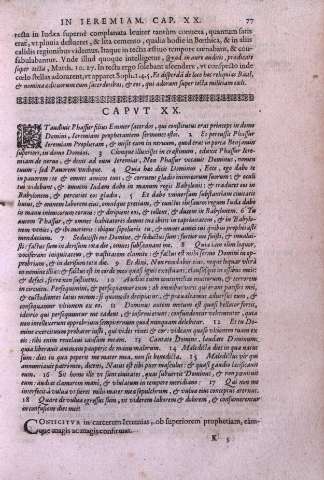 IN IEREMIAM. CAP. XX. 77
tecta in Iudæa superné complanata leuiter tantùm conuexa, quantum satis
erat, vt pluuia deflueret, & lita cemento, qualia hodie in Bœthica, & in aliis
callidis regionibus videmus. Itaque in tectis æstiuo tempore cœnabant, & con-
fabulabantur. Vnde illud quoque intelligitur, Quod in aure auditis, prædicate
super tecta, Matth. 10. 27. In tecta ergo solebant ascendere, vt conspecto inde
cœlo stellas adorarent, vt apparet Soph. 1. 4. 5. Et disperdã de loco hoc reliquias Baal,
& nomina ædituorum cum sacerdotibus, & eos, qui adorant super tecta militiam cæli.
CAPVT XX.
T audiuit Phassur filius Emmer sacerdos, qui constitutus erat princeps in domo
Domini, Ieremiam prophetantem sermones istos. 2 Et percussit Phassur
Ieremiam Prophetam, & misit eum in neruum, quod erat in porta Beniamin
superiori, in domo Domini. 3 Cùmque illuxisset in crastinum, eduxit Phassur Iere-
miam de neruo, & dixit ad eum Ieremias, Non Phassur vocauit Dominus nomen
tuum, sed Pauorem vndique. 4 Quia hæc dicit Dominus, Ecce, ego dabo te
in pauorem te & omnes amicos tuos, & corruent gladio inimicorum suorum: & oculi
tui videbunt, & omnem Iudam dabo in manum regis Babylonis: & traducet eos in
Babylonem, & percutiet eos gladio. 5 Et dabo vniuersam substantiam ciuitatis
huius, & omnem laborem eius, omnéque pretium, & cunctos thesauros regum Iuda dabo
in manu inimicorum eorum: & diripient eos, & tollent, & ducent in Babylonem. 6 Tu
autem Phassur, & omnes habitatores domus tuæ ibitis in captiuitatem, & in Babylo-
nem venies, & ibi morieris: ibíque sepelieris tu, & omnes amici tui quibus prophetasti
mendacium. 7 Seduxisti me Domine, & seductus sum: fortior me fuisti, & inualui-
sti: factus sum in derisum tota die, omnes subsannant me. 8 Quia iam olim loquor,
vociferans iniquitatem, & vastitatem clamito: & factus est mihi sermo Domini in op-
probrium, & in derisum tota die. 9 Et dixi, Non recordabor eius, neque loquar vltrà
in nomine illius: & factus est in corde meo quasi ignis exæstuans, claususque in ossibus meis:
& defeci, ferre non sustinens. 10 Audiui enim contumelias multorum, & terrorem
in circuitu. Persequimini, & persequamur eum: ab omnibus viris qui erant pacifici mei,
& custodientes latus meum: si quomodo decipiatur, & præualeamus aduersus eum, &
consequamur vltionem ex eo. 11 Dominus autem mecum est quasi bellator fortis,
idcirco qui persequuntur me cadent, & infirmi erunt, confundentur vehementer, quia
non intellexerunt opprobrium sempiternum quod nunquam delebitur. 12 Et tu Do-
mine exercituum probator iusti, qui vides renes & cor: videam quæso vltionem tuam ex
eis: tibi enim reuelaui causam meam. 13 Cantate Domino, laudate Dominum,
quia liberauit animam pauperis de manu malorum. 14 Maledicta dies in qua natus
sum: dies in qua peperit me mater mea, non sit benedicta. 15 Maledictus vir qui
annunciauit patri meo, dicens, Natus est tibi puer masculus: & quasi gaudio lætificauit
eum. 16 Sit homo ille vt sunt ciuitates, quas subuertit Dominus, & non pœnituit
eum: audiat clamorem manè, & vlulatum in tempore meridiano: 17 Qui non me
interfecit à vulua vt fieret mihi mater mea sepulchrum, & vulua eius conceptus æternus.
18 Quare de vulua egressus sum, vt viderem laborem & dolorem, & consumerentur
in confusione dies mei?
CONIICITVR in carcerem Ieremias, ob superiorem prophetiam, eám-
que magis ac magis confirmat.
K 3